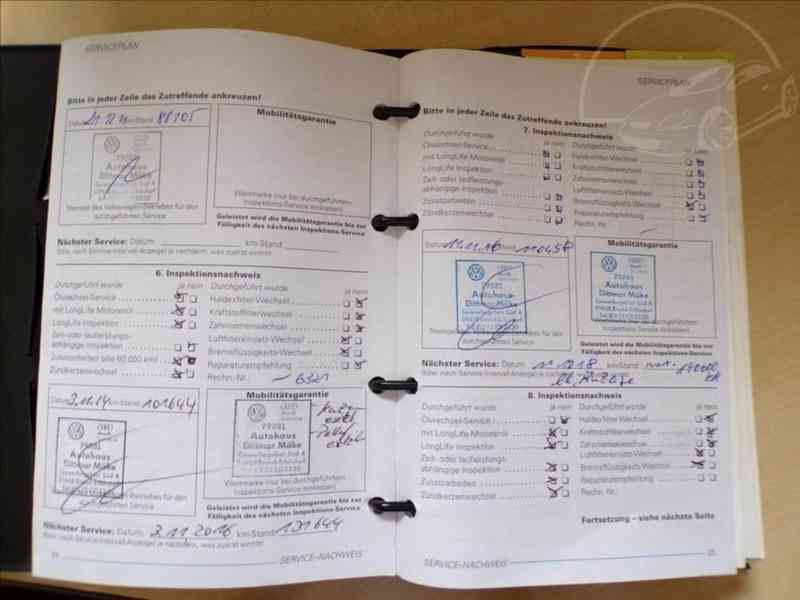 SERVICEPLAN
Bitte in jeder Zeile das Zutreffende ankreuzen!
Datum km-Stand 88105
Mobilitätsgarantie
79081
Autohaus
Dittmar Möke
Stempel des Volkswagen Betriebes für den
durchgeführten Service
Wertmarke (nur bei durchgeführtem
Inspektions-Service einkleben)
Geleistet wird die Mobilitätsgarantie bis zur
Fälligkeit des nächsten Inspektions-Service
Nächster Service: Datum km-Stand
bzw. nach Service-Intervall-Anzeige je nachdem, was zuerst eintritt
6. Inspektionsnachweis
Durchgeführt wurde ja nein
Ölwechsel-Service
mit LongLife Motorenöl
LongLife Inspektion
Zeit- oder laufleistungs-
abhängige Inspektion
Zusatzarbeiten (alle 60.000 km)
Zündkerzenwechsel
Durchgeführt wurde ja nein
Haldexfilter-Wechsel
Kraftstofffilterwechsel
Zahnriemenwechsel
Luftfiltereinsatz-Wechsel
Bremsflüssigkeits-Wechsel
Reparaturempfehlung
Rechn.-Nr.: 6321
Datum 3.11.14 km-Stand 101644
79081
Autohaus
Dittmar Möke
Mobilitätsgarantie
79081
Autohaus
Dittmar Möke
Wertmarke (nur bei durchgeführtem
Inspektions-Service einkleben)
Geleistet wird die Mobilitätsgarantie bis zur
Fälligkeit des nächsten Inspektions-Service
Nächster Service: Datum 3.11.2016 km-Stand 131644
bzw. nach Service-Intervall-Anzeige je nachdem, was zuerst eintritt
SERVICE-NACHWEIS
SERVICEPLAN
Bitte in jeder Zeile das Zutreffende ankreuzen!
7. Inspektionsnachweis
Durchgeführt wurde ja nein
Ölwechsel-Service
mit LongLife Motorenöl
LongLife Inspektion
Zeit- oder laufleistungs-
abhängige Inspektion
Zusatzarbeiten
Zündkerzenwechsel
Durchgeführt wurde ja nein
Haldexfilter-Wechsel
Kraftstofffilterwechsel
Zahnriemenwechsel
Luftfiltereinsatz-Wechsel
Bremsflüssigkeits-Wechsel
Reparaturempfehlung
Rechn.-Nr.:
Datum 14.11.16
79081
Autohaus
Dittmar Möke
Mobilitätsgarantie
79081
Autohaus
Dittmar Möke
Geleistet wird die Mobilitätsgarantie bis zur
Fälligkeit des nächsten Inspektions-Service
Nächster Service: Datum km-Stand
bzw. nach Service-Intervall-Anzeige je nachdem, was zuerst eintritt
8. Inspektionsnachweis
Durchgeführt wurde ja nein
Ölwechsel-Service
mit LongLife Motorenöl
LongLife Inspektion
Zeit- oder laufleistungs-
abhängige Inspektion
Zusatzarbeiten
Zündkerzenwechsel
Durchgeführt wurde ja nein
Haldexfilter-Wechsel
Kraftstofffilterwechsel
Zahnriemenwechsel
Luftfiltereinsatz-Wechsel
Bremsflüssigkeits-Wechsel
Reparaturempfehlung
Rechn.-Nr.:
Fortsetzung – siehe nächste Seite
SERVICE-NACHWEIS